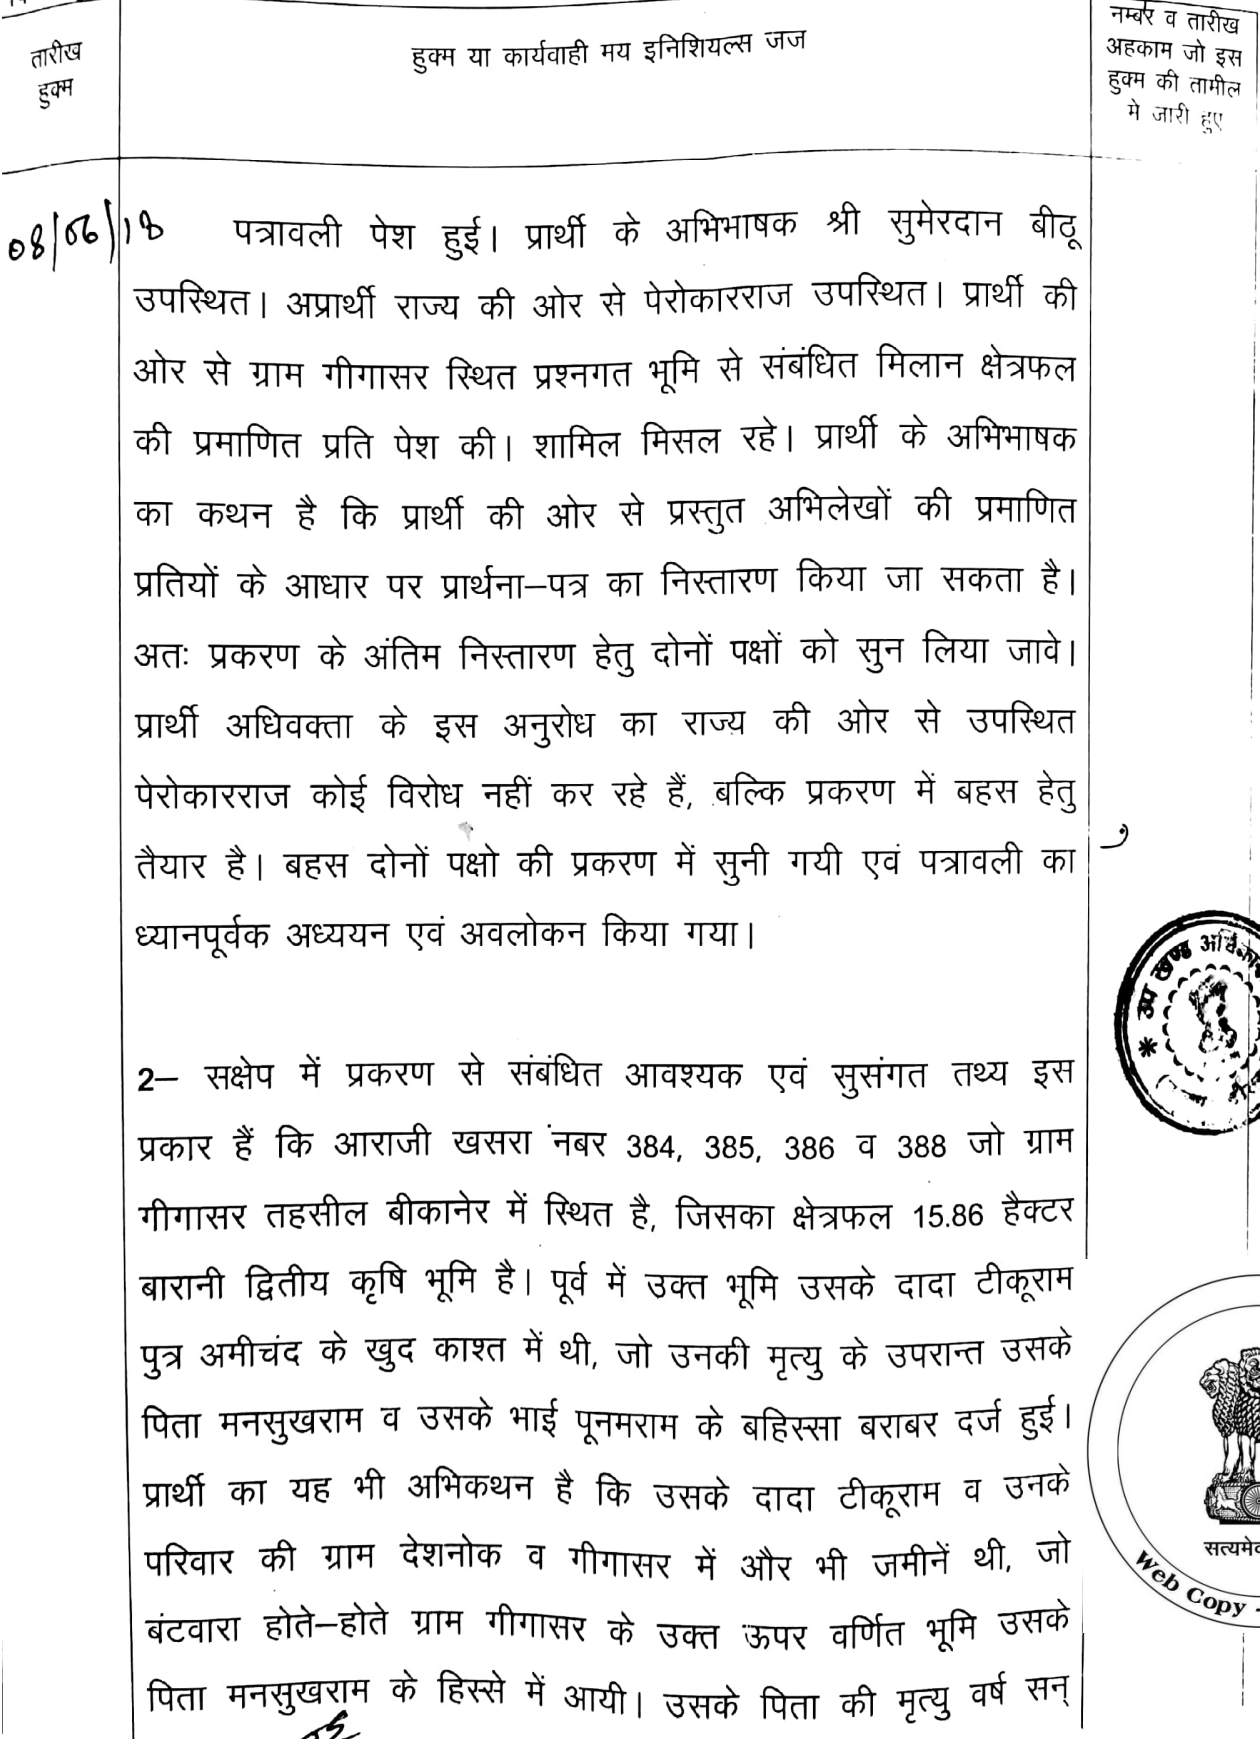 तारीख
हुक्म
हुक्म या कार्यवाही मय इनिशियल्स जज
नम्बर व तारीख
अहकाम जो इस
हुक्म की तामील
मे जारी हुए
08/06/18 पत्रावली पेश हुई। प्रार्थी के अभिभाषक श्री सुमेरदान बीठू
उपस्थित। अप्रार्थी राज्य की ओर से पेरोकारराज उपस्थित। प्रार्थी की
ओर से ग्राम गीगासर स्थित प्रश्नगत भूमि से संबंधित मिलान क्षेत्रफल
की प्रमाणित प्रति पेश की। शामिल मिसल रहे। प्रार्थी के अभिभाषक
का कथन है कि प्रार्थी की ओर से प्रस्तुत अभिलेखों की प्रमाणित
प्रतियों के आधार पर प्रार्थना–पत्र का निस्तारण किया जा सकता है।
अतः प्रकरण के अंतिम निस्तारण हेतु दोनों पक्षों को सुन लिया जावे।
प्रार्थी अधिवक्ता के इस अनुरोध का राज्य की ओर से उपस्थित
पेरोकारराज कोई विरोध नहीं कर रहे हैं, बल्कि प्रकरण में बहस हेतु
तैयार है। बहस दोनों पक्षो की प्रकरण में सुनी गयी एवं पत्रावली का
ध्यानपूर्वक अध्ययन एवं अवलोकन किया गया।
2– सक्षेप में प्रकरण से संबंधित आवश्यक एवं सुसंगत तथ्य इस
प्रकार हैं कि आराजी खसरा नंबर 384, 385, 386 व 388 जो ग्राम
गीगासर तहसील बीकानेर में स्थित है, जिसका क्षेत्रफल 15.86 हैक्टर
बारानी द्वितीय कृषि भूमि है। पूर्व में उक्त भूमि उसके दादा टीकूराम
पुत्र अमीचंद के खुद काश्त में थी, जो उनकी मृत्यु के उपरान्त उसके
पिता मनसुखराम व उसके भाई पूनमराम के बहिस्सा बराबर दर्ज हुई।
प्रार्थी का यह भी अभिकथन है कि उसके दादा टीकूराम व उनके
परिवार की ग्राम देशनोक व गीगासर में और भी जमीनें थी, जो
बंटवारा होते–होते ग्राम गीगासर के उक्त ऊपर वर्णित भूमि उसके
पिता मनसुखराम के हिस्से में आयी। उसके पिता की मृत्यु वर्ष सन्
उप खण्ड
Web Copy